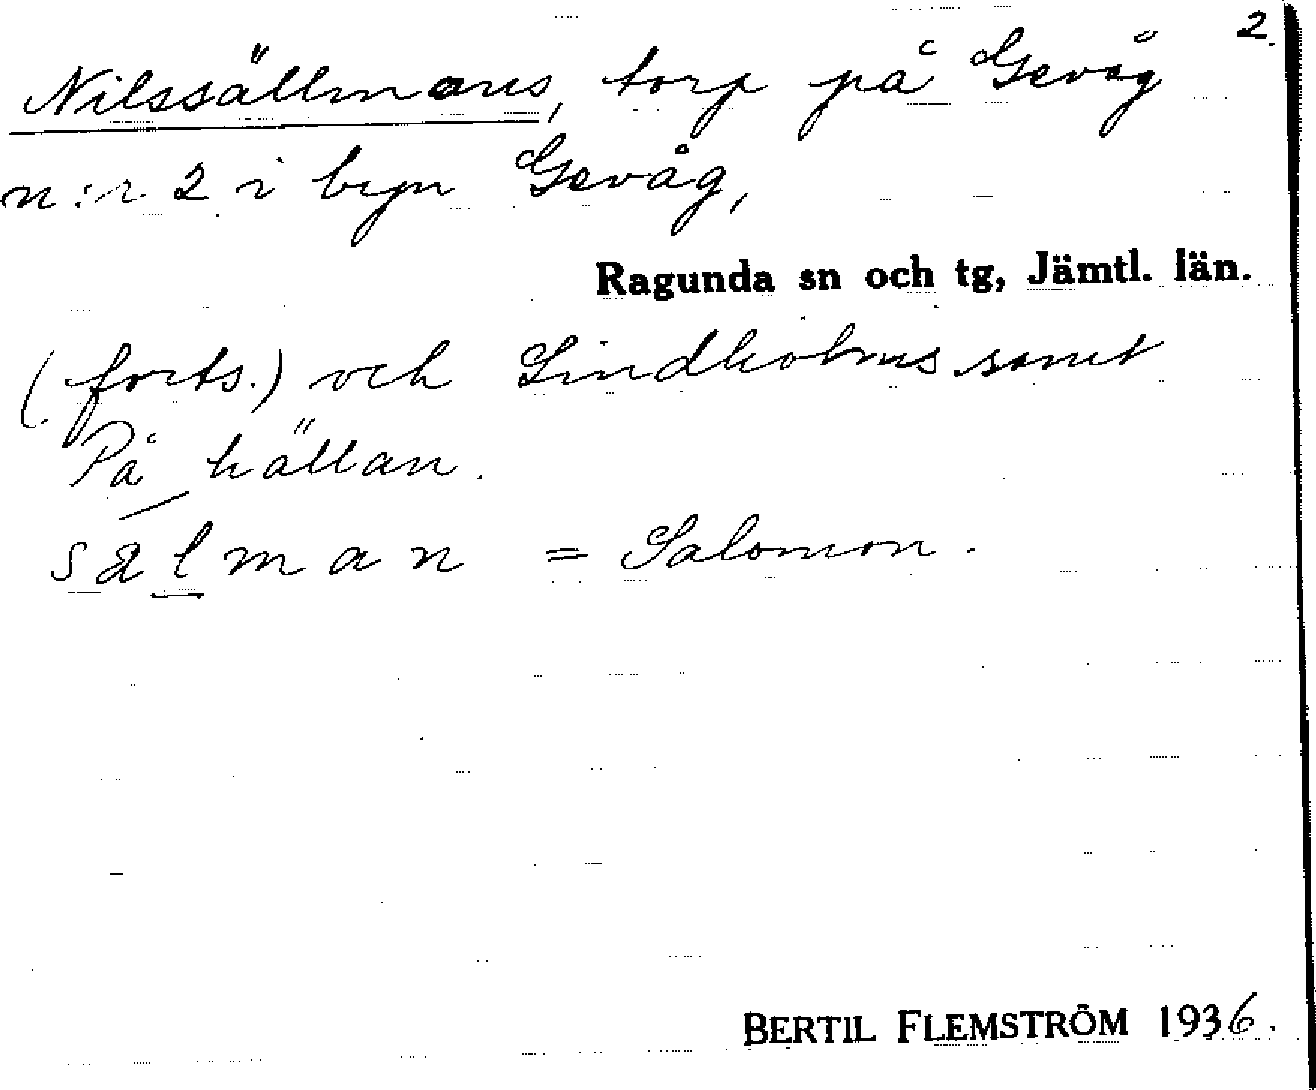 2.
Nilssällmans, torp på Gevåg
n:r 2 i byn Gevåg,
Ragunda sn och tg, Jämtl. län.
(forts.) och Lindholms samt
På hällan.
salman = Salomon.
BERTIL FLEMSTRÖM 1936.